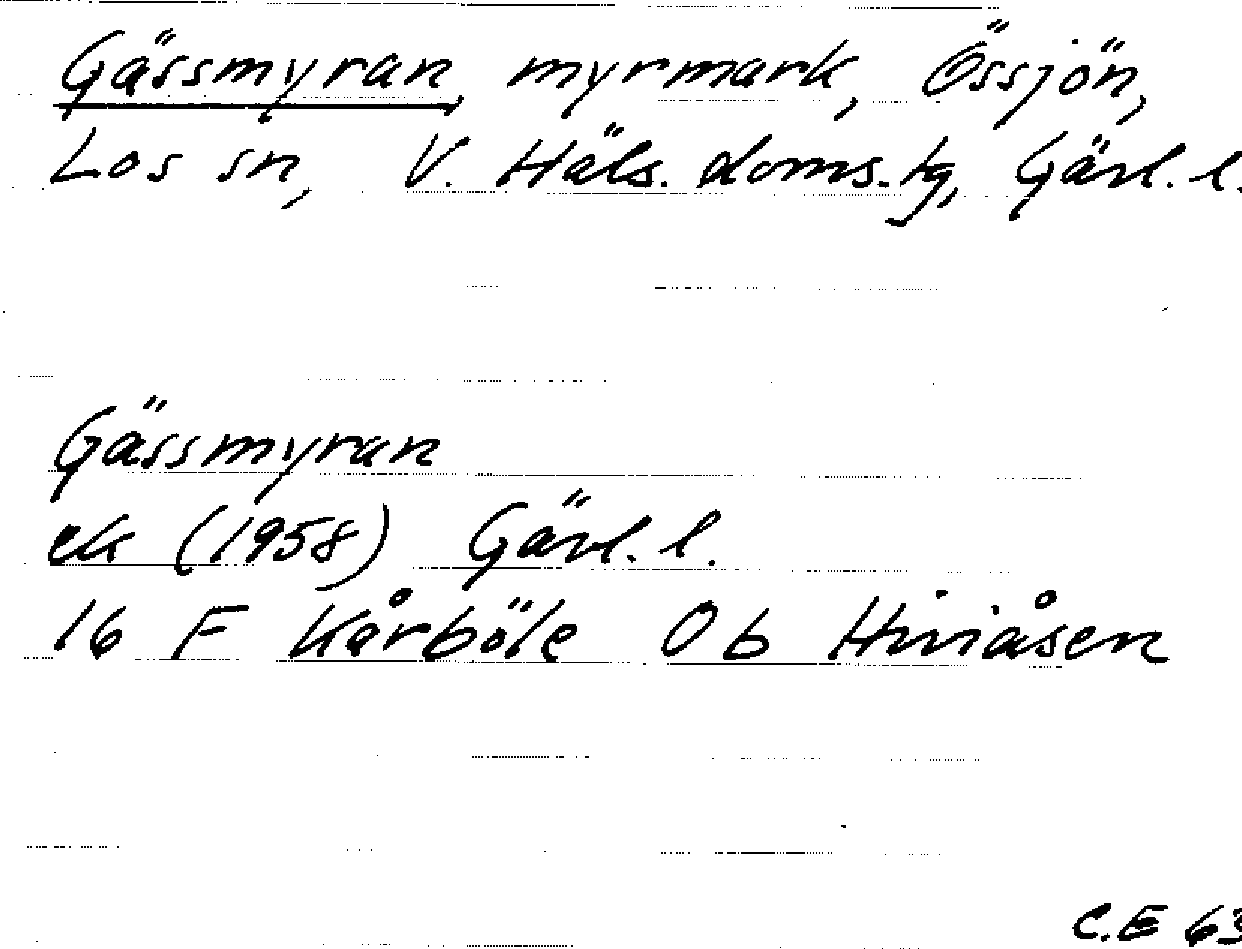 Gässmyran, myrmark, Össjön,
Los sn, V. Häls. doms.tg, Gävl. l.
Gässmyran
ek (1958) Gävl. l.
16 F Kårböle 0 b Hiviåsen
C.E 63